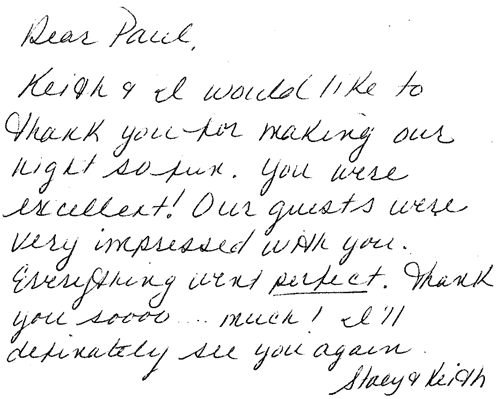 Dear Paul,
Keith & I would like to
thank you for making our
night so fun. You were
excellent! Our guests were
very impressed with you.
Everything went perfect. Thank
you soooo... much! I'll
definately see you again.
Stacy & Keith